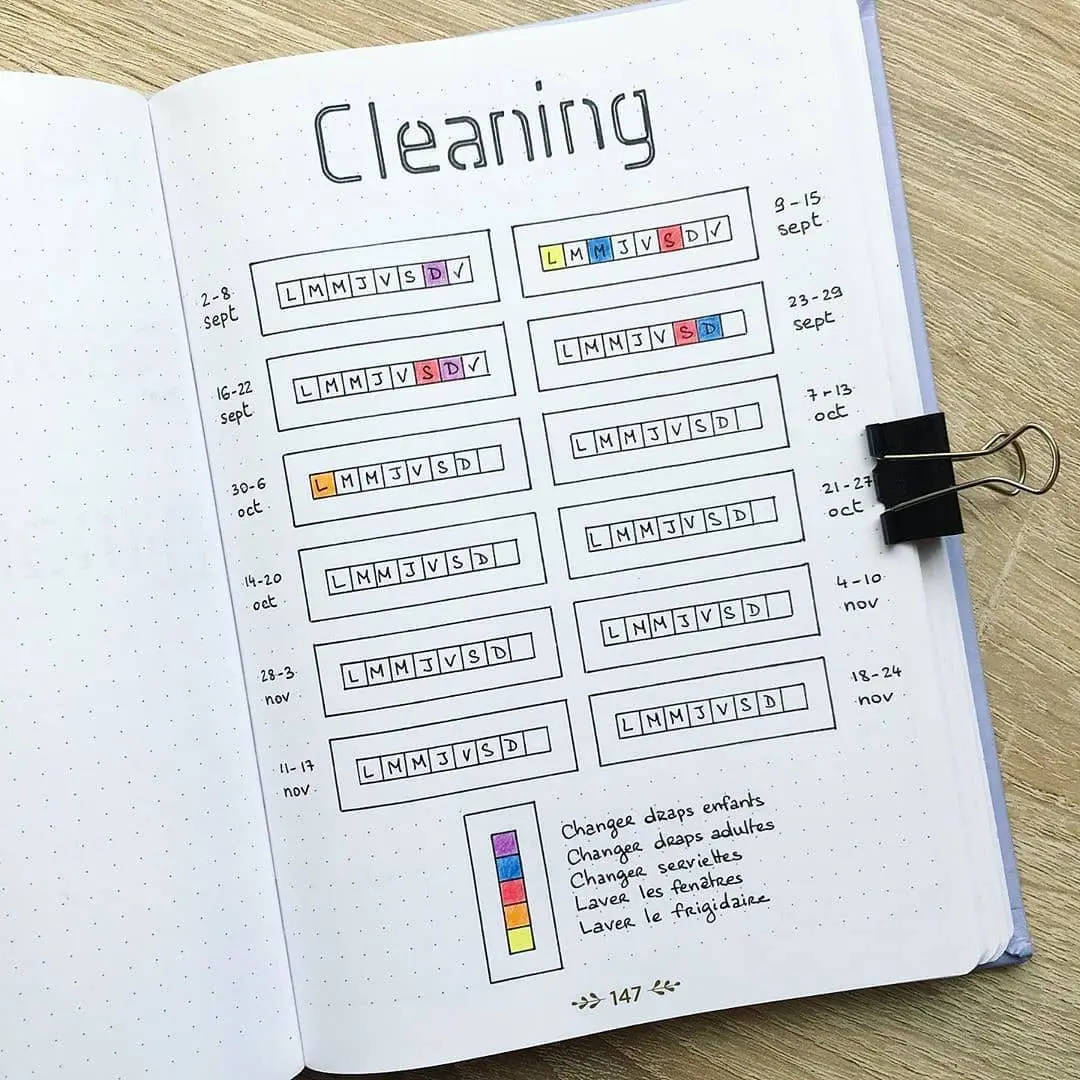 Cleaning
2-8
sept
L M M J V S D ✓
L M M J V S D ✓
9-15
sept
16-22
sept
L M M J V S D ✓
L M M J V S D
23-29
sept
30-6
oct
L M M J V S D
L M M J V S D
7-13
oct
14-20
oct
L M M J V S D
L M M J V S D
21-27
oct
28-3
nov
L M M J V S D
L M M J V S D
4-10
nov
11-17
nov
L M M J V S D
L M M J V S D
18-24
nov
Changer draps enfants
Changer draps adultes
Changer serviettes
Laver les fenêtres
Laver le frigidaire
147